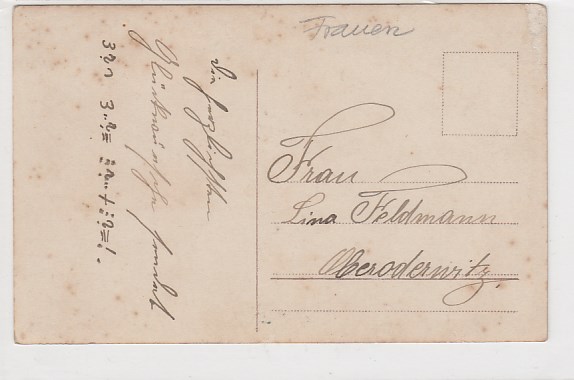 Frauen
Die herzlichsten
Glückwünsche sendet
Frau
Lina Feldmann
Oberoderwitz.